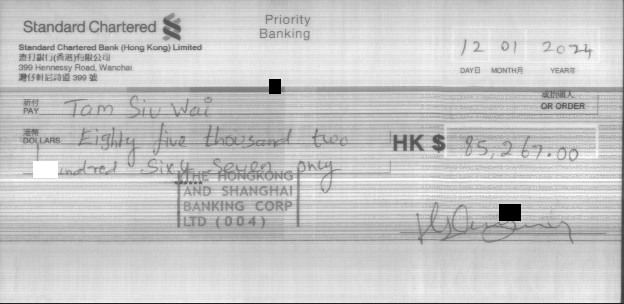 Standard Chartered
Priority
Banking
Standard Chartered Bank (Hong Kong) Limited
渣打銀行(香港)有限公司
399 Hennessy Road, Wanchai
灣仔軒尼詩道 399 號
12 01 2024
DAY日 MONTH月 YEAR年
祈付
PAY
Tam Siu Wai
或指領人
OR ORDER
港幣
DOLLARS
Eighty five thousand two
undred Sixty Seven only
HK $ 85,267.00
THE HONGKONG
AND SHANGHAI
BANKING CORP
LTD (004)